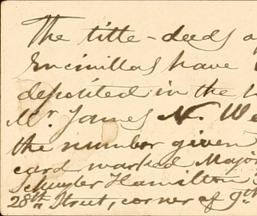 The title-deeds a
Encinillas have
deposited in the
Mr. James N. We
the number given
card marked Major
Schuyler Hamilton
28th Street, corner of 9th